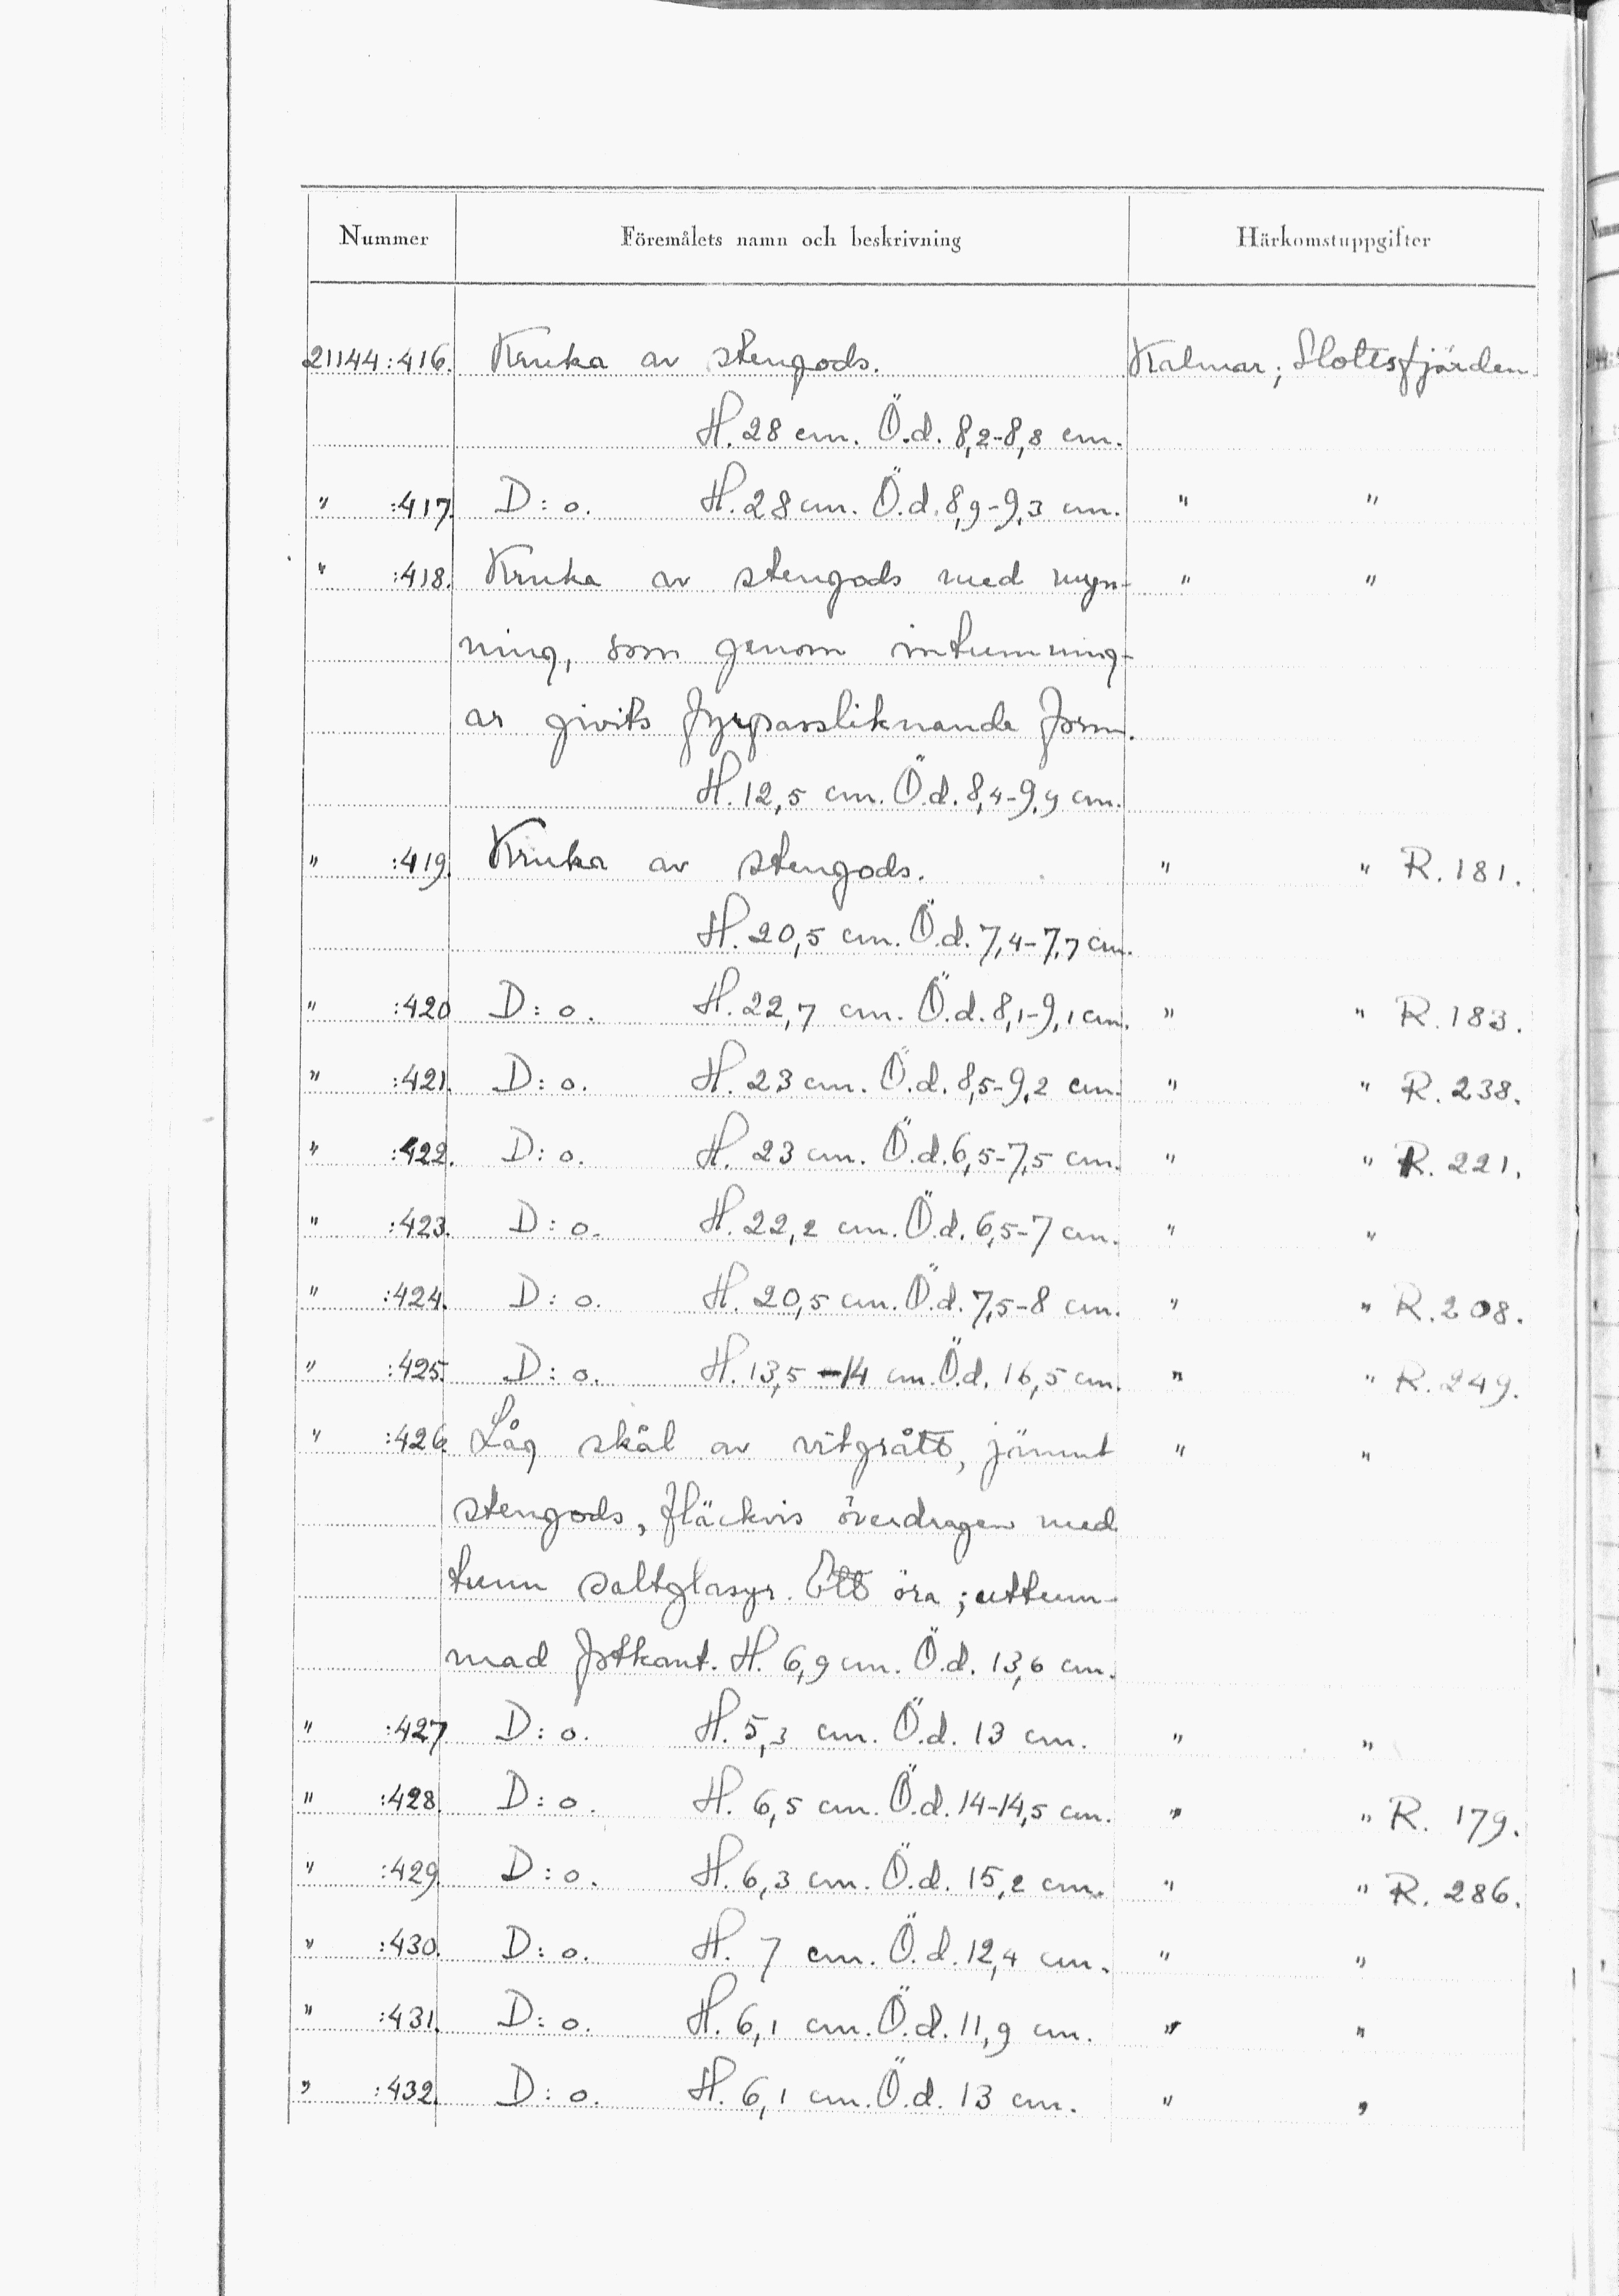 Nummer Föremålets namn och beskrivning Härkomstuppgifter
21144:416. Kruka av stengods. Kalmar; Slottsfjärden.
H. 28 cm. Ö.d. 8,2-8,8 cm.
" :417. D:o. H. 28 cm. Ö.d. 8,9-9,3 cm. " "
" :418. Kruka av stengods med myn- " "
ning, som genom intumning-
ar givits fyrpassliknande form.
H. 12,5 cm. Ö.d. 8,4-9,9 cm.
" :419. Kruka av stengods. " " R. 181.
H. 20,5 cm. Ö.d. 7,4-7,7 cm.
" :420 D:o. H. 22,7 cm. Ö.d. 8,1-9,1 cm. " " R. 183.
" :421. D:o. H. 23 cm. Ö.d. 8,5-9,2 cm. " " R. 238.
" :422. D:o. H. 23 cm. Ö.d. 6,5-7,5 cm. " " R. 221.
" :423. D:o. H. 22,2 cm. Ö.d. 6,5-7 cm. " "
" :424. D:o. H. 20,5 cm. Ö.d. 7,5-8 cm. " " R. 208.
" :425. D:o. H. 13,5-14 cm. Ö.d. 16,5 cm. " " R. 249.
" :426. Låg skål av vitgrått, jämnt " "
stengods, fläckvis överdragen med
tunn saltglasyr. Ett öra; uttum-
mad fotkant. H. 6,9 cm. Ö.d. 13,6 cm.
" :427 D:o. H. 5,3 cm. Ö.d. 13 cm. " "
" :428. D:o. H. 6,5 cm. Ö.d. 14-14,5 cm. " " R. 179.
" :429. D:o. H. 6,3 cm. Ö.d. 15,2 cm. " " R. 286.
" :430. D:o. H. 7 cm. Ö.d. 12,4 cm. " "
" :431. D:o. H. 6,1 cm. Ö.d. 11,9 cm. " "
" :432. D:o. H. 6,1 cm. Ö.d. 13 cm. " "